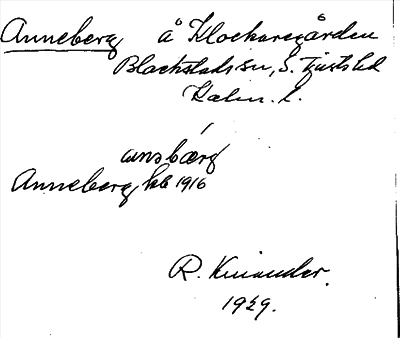 Anneberg å Klockaregården
Blackstads sn, S. Tjusts hd
Kalm. l.
ansbærg
Anneberg kb 1916
R. Kinander.
1929.